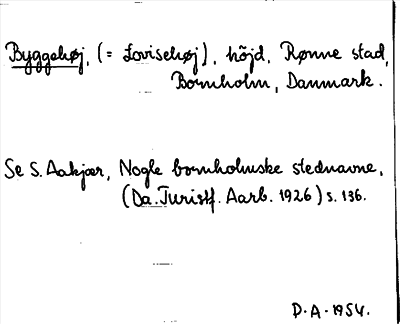 Byggehøj, (= Lovisehøj), höjd, Rønne stad,
Bornholm, Danmark.
Se S. Aakjær, Nogle bornholmske stednavne,
(Da. Turistf. Aarb. 1926) s. 136.
D.A. 1954.